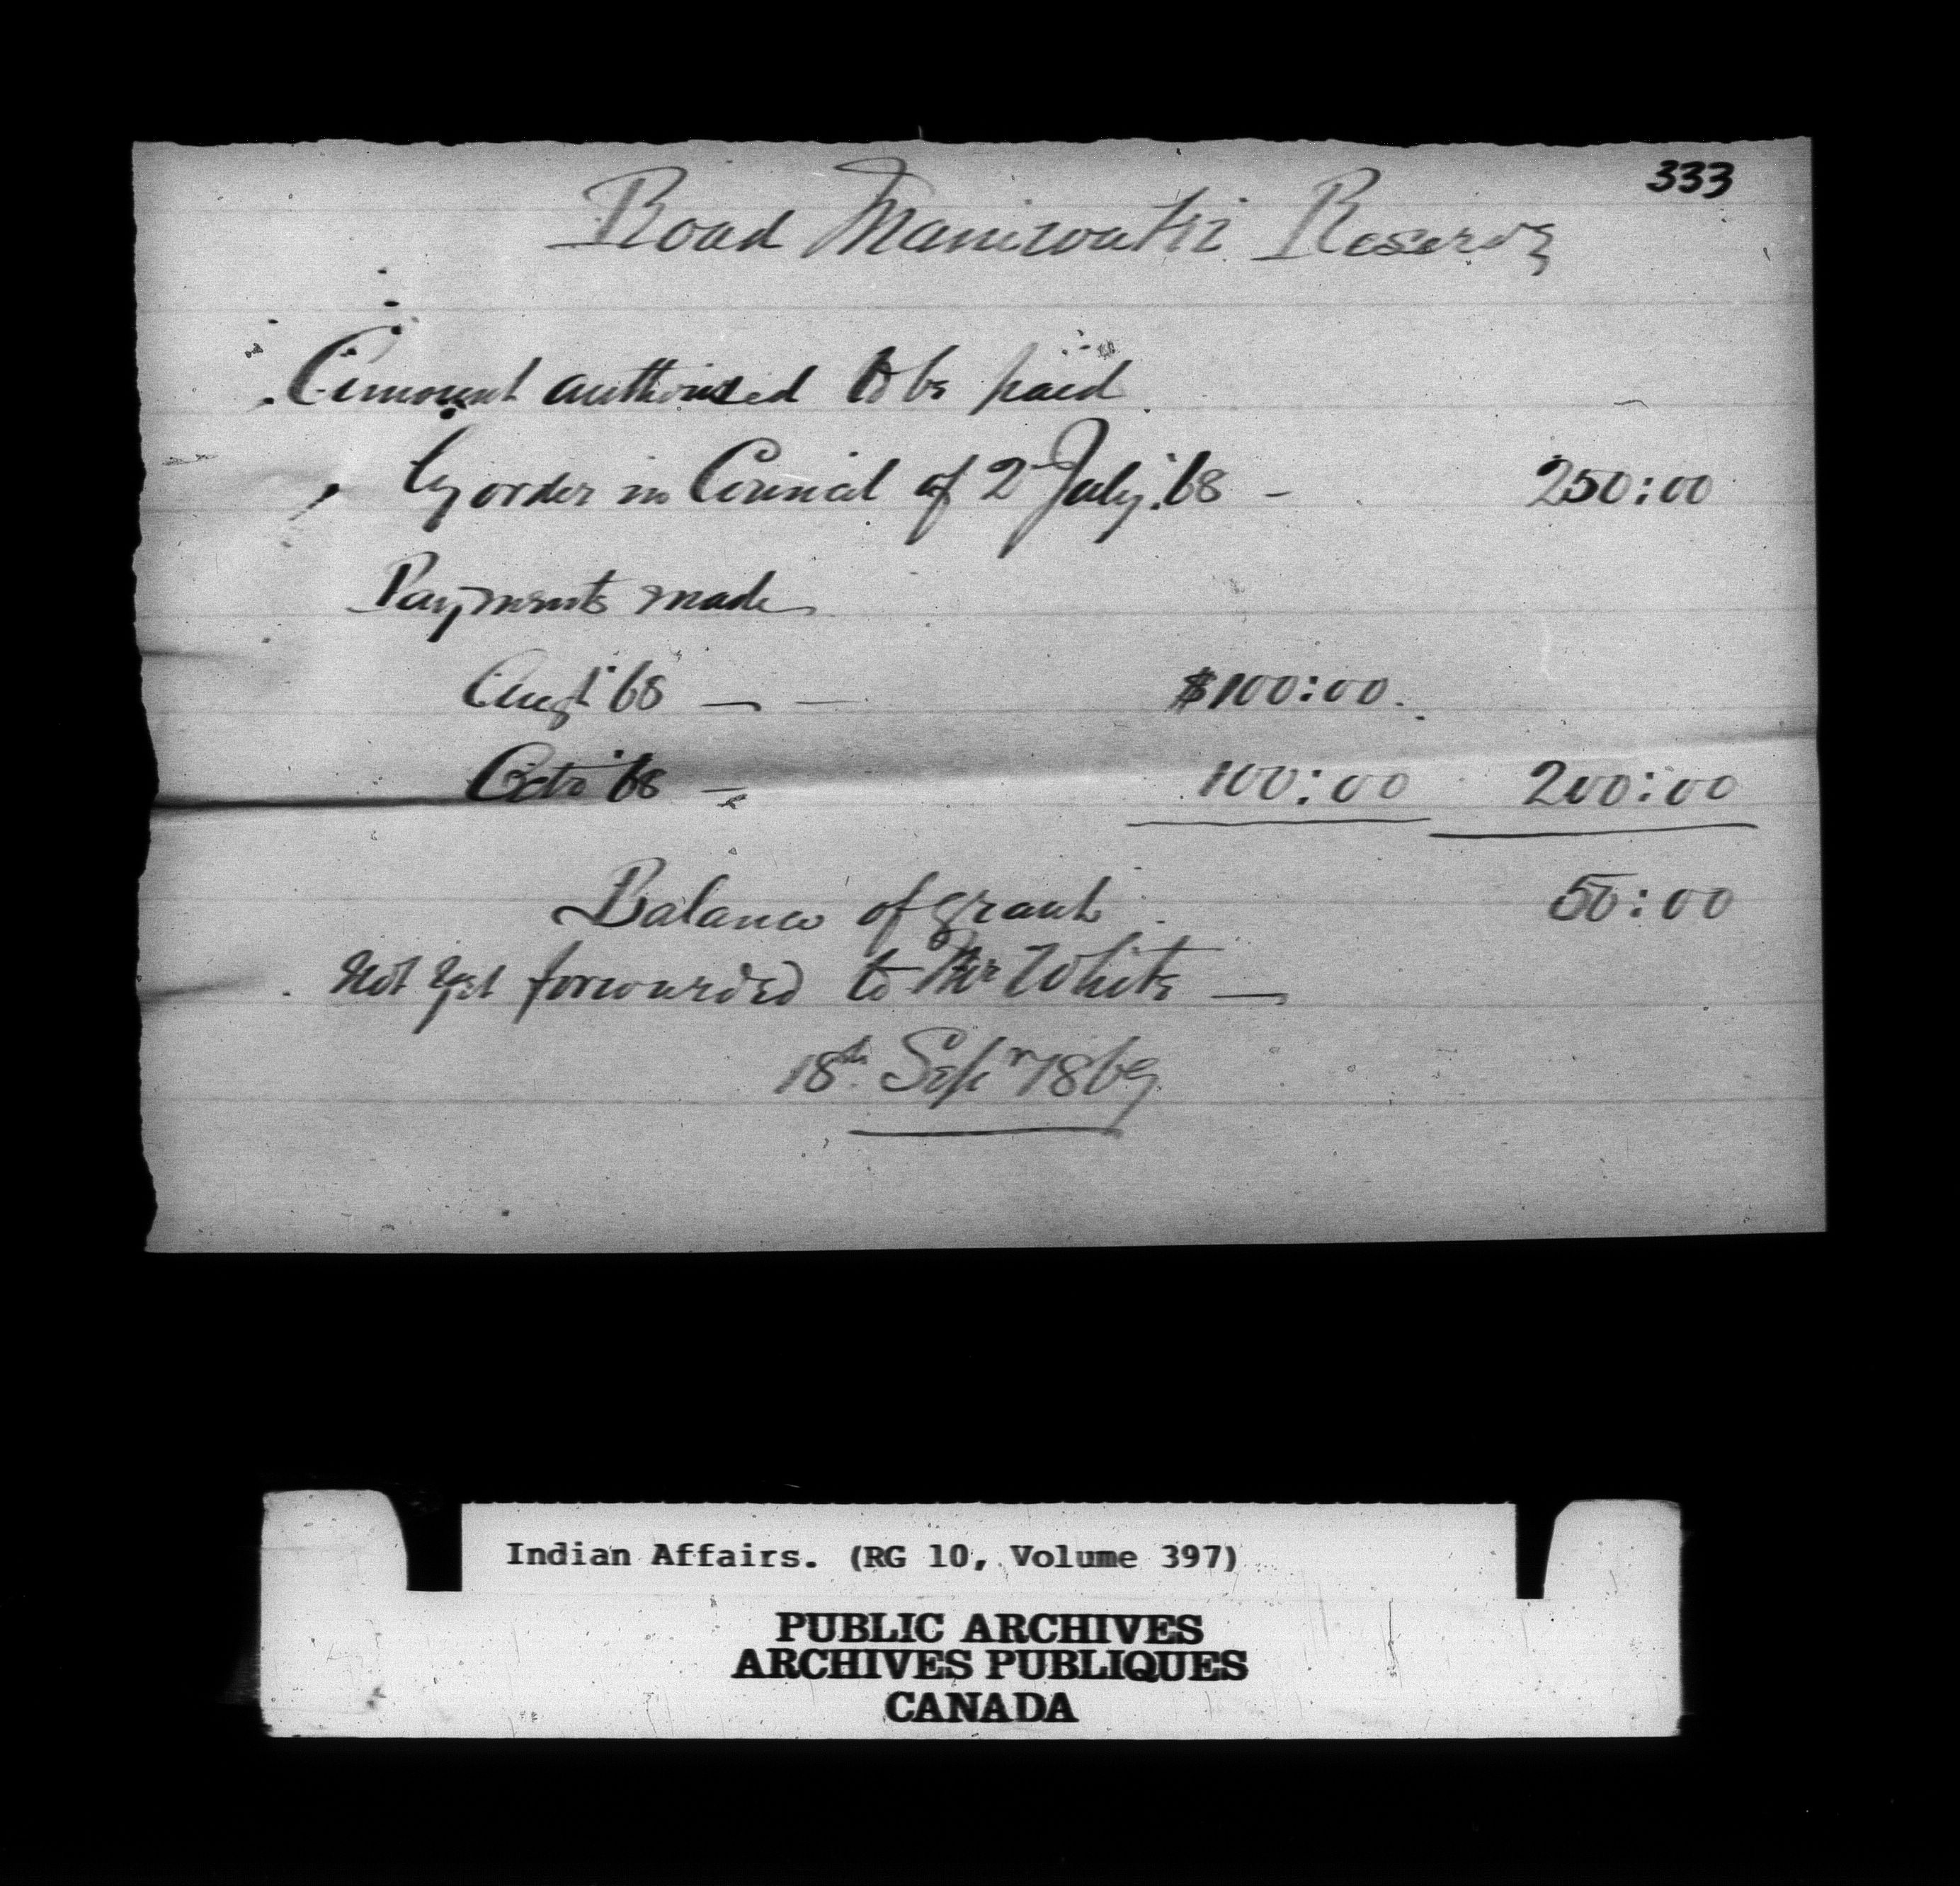 333
Road Maniwaki Reserve
Amount authorised to be paid
by order in Council of 2 July '68 - 250:00
Payments made
Augt '68 — — $100:00.
Octr '68 — 100:00 200:00
Balance of grant 50:00
Not yet forwarded to Mr White —
18th Sepr 1869
Indian Affairs. (RG 10, Volume 397)
PUBLIC ARCHIVES
ARCHIVES PUBLIQUES
CANADA